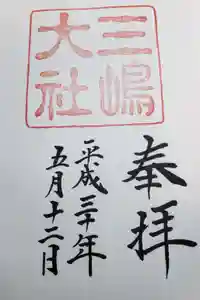 奉拝
三嶋
大社
平成三十年
五月十二日